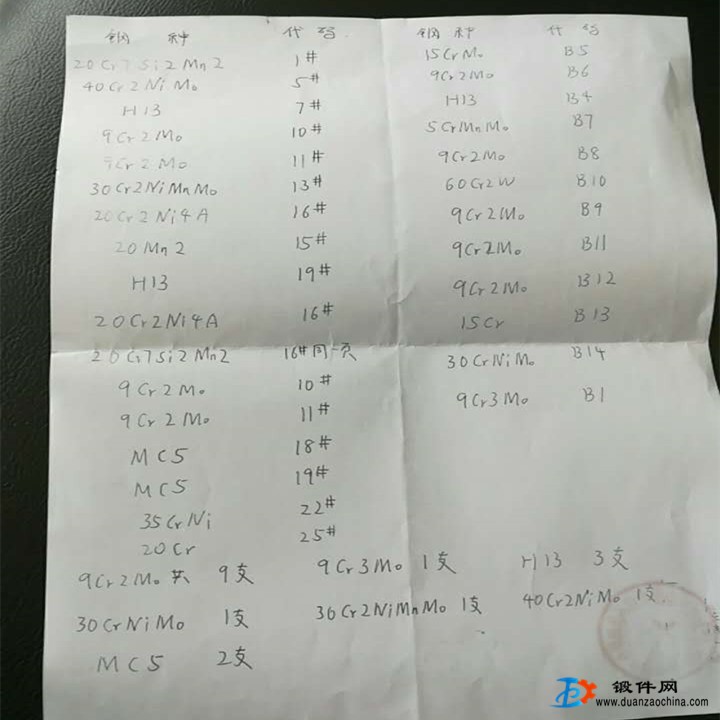 钢种 代码
20Cr7Si2Mn2 1#
40Cr2NiMo 5#
H13 7#
9Cr2Mo 10#
9Cr2Mo 11#
30Cr2NiMnMo 13#
20Cr2Ni4A 16#
20Mn2 15#
H13 19#
20Cr2Ni4A 16#
20Cr7Si2Mn2 16#同一页
9Cr2Mo 10#
9Cr2Mo 11#
MC5 18#
MC5 19#
35CrNi 22#
20Cr 25#
钢种 代码
15CrMo B5
9Cr2Mo B6
H13 B4
5CrMnMo B7
9Cr2Mo B8
60Cr2W B10
9Cr2Mo B9
9Cr2Mo B11
9Cr2Mo B12
15Cr B13
30CrNiMo B14
9Cr3Mo B1
9Cr2Mo 共 9支 9Cr3Mo 1支 H13 3支
30CrNiMo 1支 30Cr2NiMnMo 1支 40Cr2NiMo 1支
MC5 2支
锻件网
www.duanzaochina.com